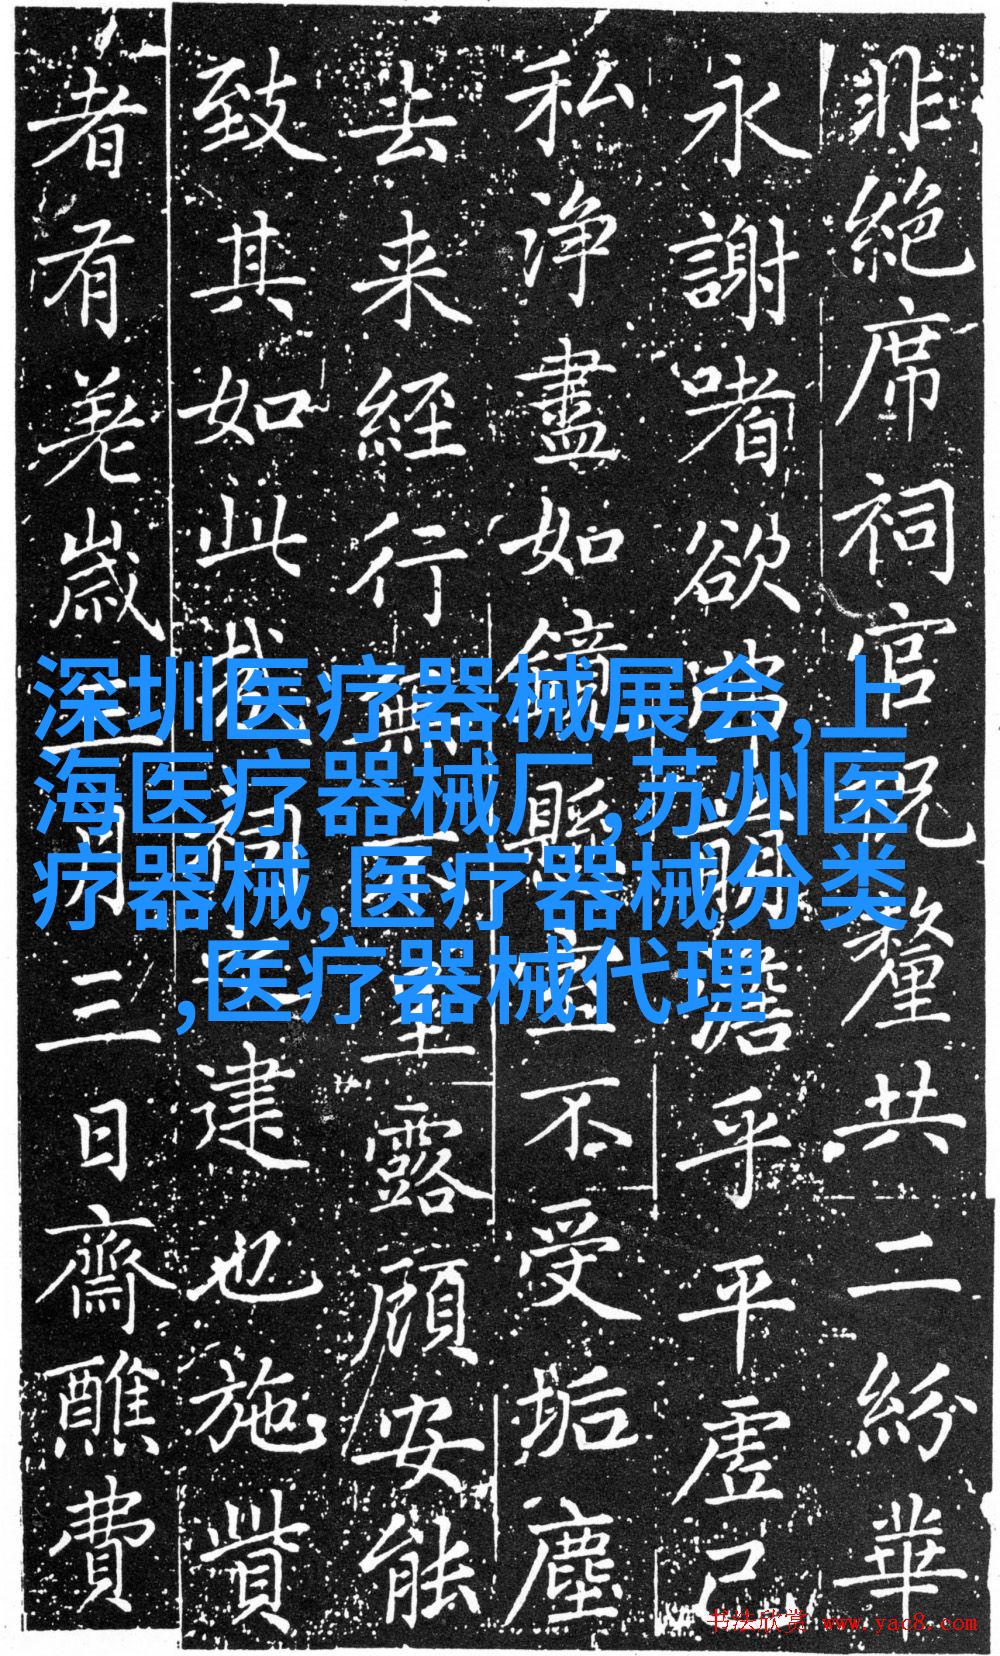 非絕席祠官祝釐共二紛華
永謝嗜欲
乎平虛己
私淨盡如鏡縣
不受垢塵
去来経行無
露顧安能
致其如此
建也施貲
者有羌歲
月三日齋醮費
深圳医疗器械展会,上
海医疗器械厂,苏州医
疗器械,医疗器械分类
,医疗器械代理
书法欣赏 www.yac8.com